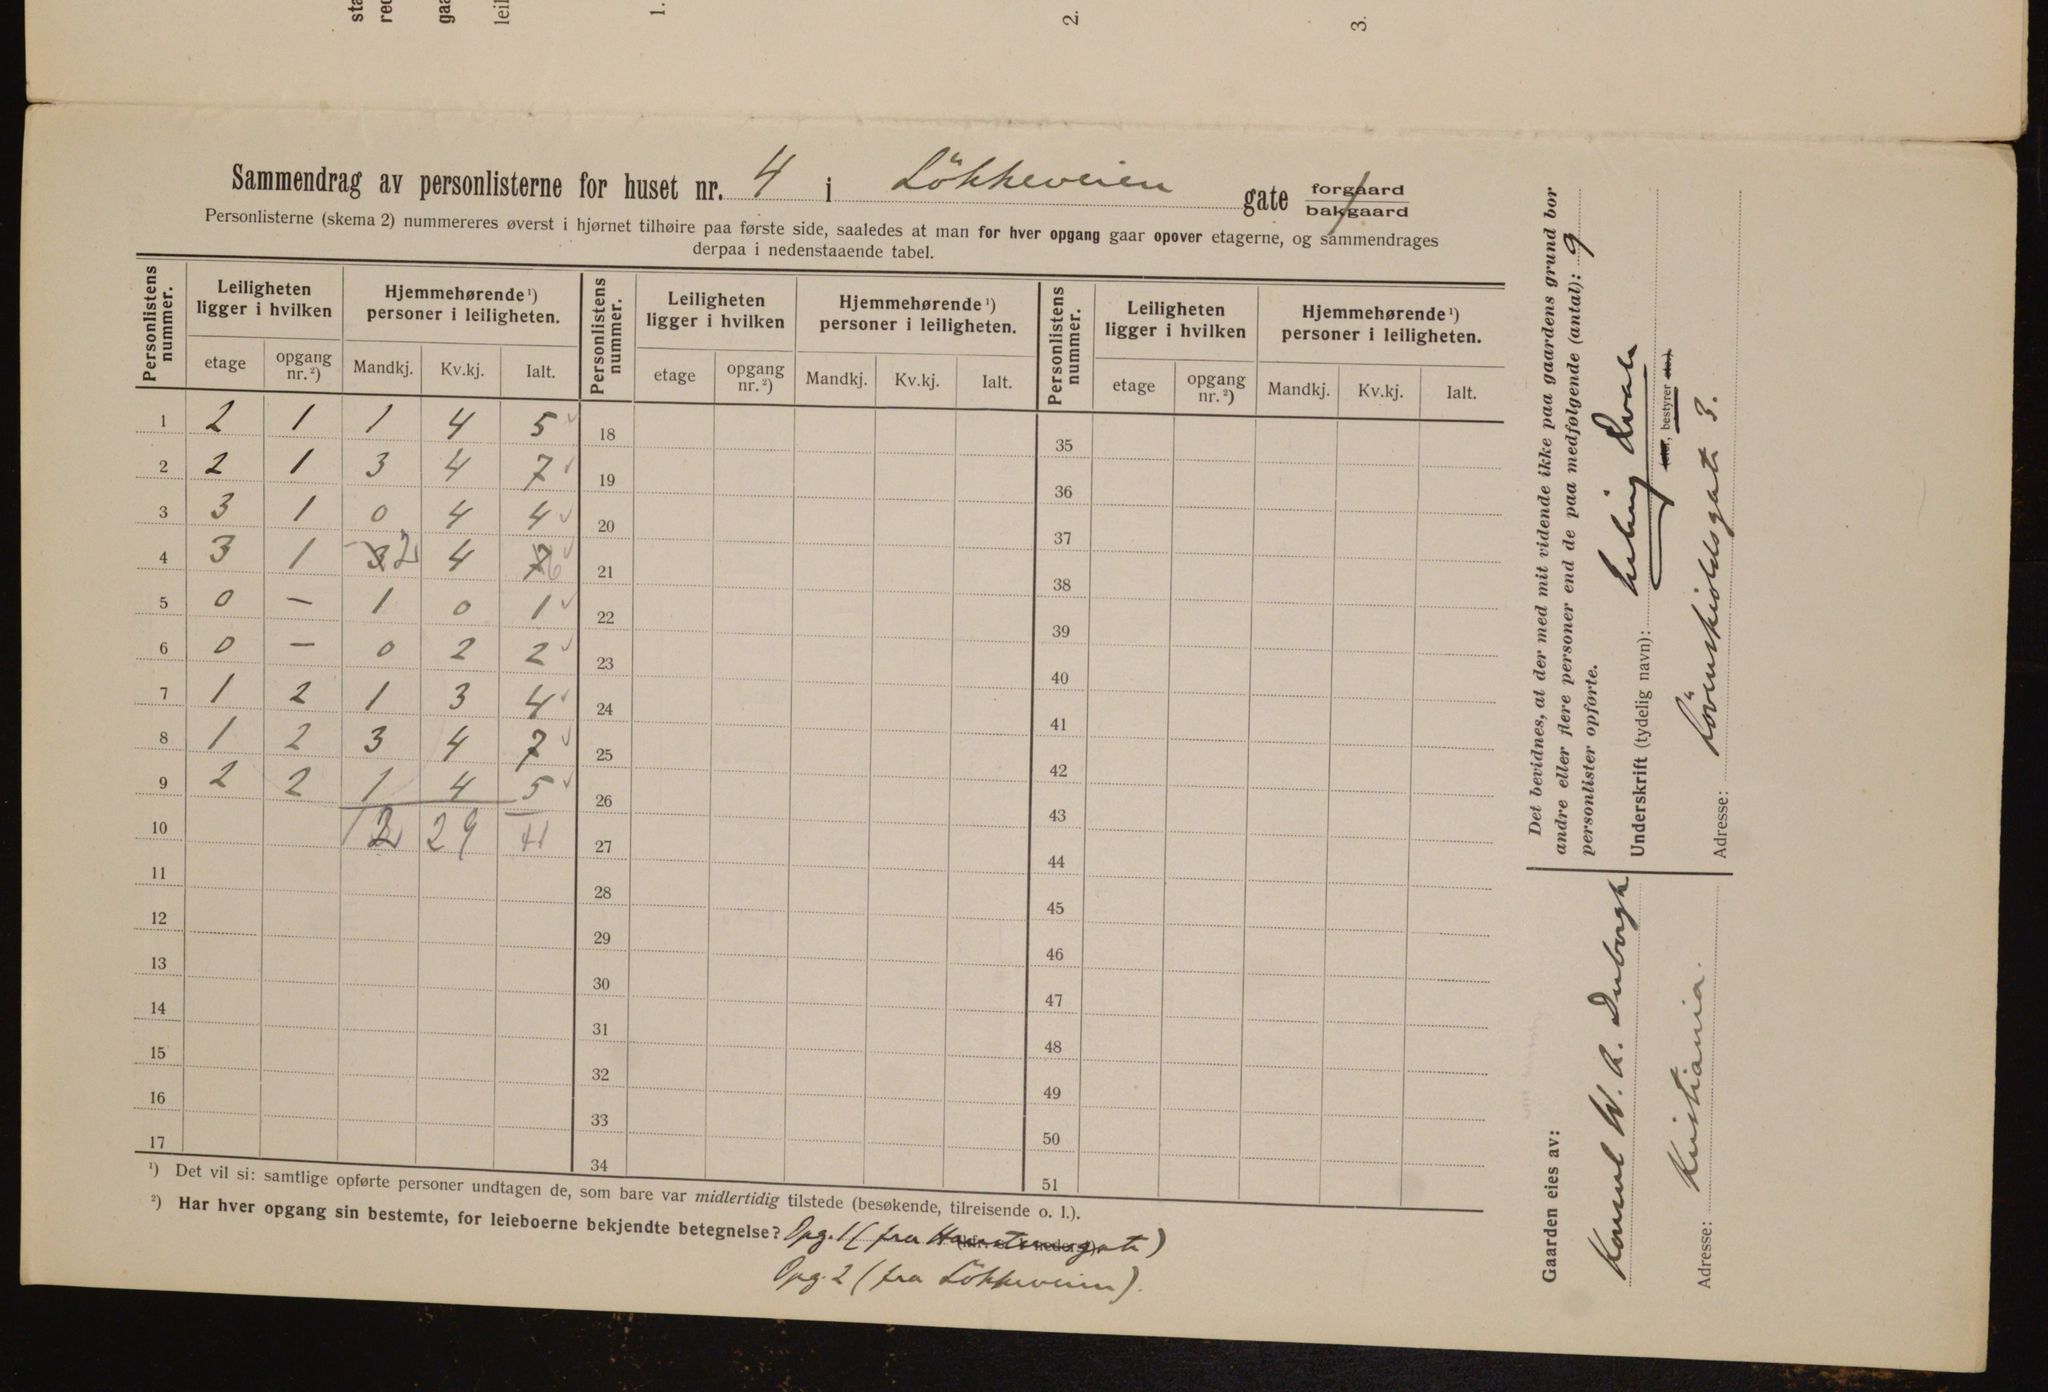 sta
red
gaa
leil
1.
2.
3.
Sammendrag av personlisterne for huset nr. 4 i Lökkeveien gate forgaard
bakgaard
Personlisterne (skema 2) nummereres øverst i hjørnet tilhøire paa første side, saaledes at man for hver opgang gaar opover etagerne, og sammendrages
derpaa i nedenstaaende tabel.
Personlistens nummer. Leiligheten ligger i hvilken Hjemmehørende ¹) personer i leiligheten. Personlistens nummer. Leiligheten ligger i hvilken Hjemmehørende ¹) personer i leiligheten. Personlistens nummer. Leiligheten ligger i hvilken Hjemmehørende ¹) personer i leiligheten.
etage opgang nr. ²) Mandkj. Kv.kj. Ialt. etage opgang nr. ²) Mandkj. Kv.kj. Ialt. etage opgang nr. ²) Mandkj. Kv.kj. Ialt.
1 2 1 1 4 5 18 35
2 2 1 3 4 7 19 36
3 3 1 0 4 4 20 37
4 3 1 3 2 4 7 6 21 38
5 0 — 1 0 1 22 39
6 0 — 0 2 2 23 40
7 1 2 1 3 4 24 41
8 1 2 3 4 7 25 42
9 2 2 1 4 5 26 43
10 12 29 41 27 44
11 28 45
12 29 46
13 30 47
14 31 48
15 32 49
16 33 50
17 34 51
¹) Det vil si: samtlige opførte personer undtagen de, som bare var midlertidig tilstede (besøkende, tilreisende o. l.).
²) Har hver opgang sin bestemte, for leieboerne bekjendte betegnelse? Opg. 1 (fra
Opg. 2 (fra Lökkeveien).
Det bevidnes, at der med mit vidende ikke paa gaardens grund bor
andre eller flere personer end de paa medfølgende (antal): 9
personlister opførte.
Underskrift (tydelig navn):
eier, bestyrer
Adresse: Lövenskioldsgate 3.
Gaarden eies av:
Konsul W. A. Duborgh
Adresse: Kristiania.